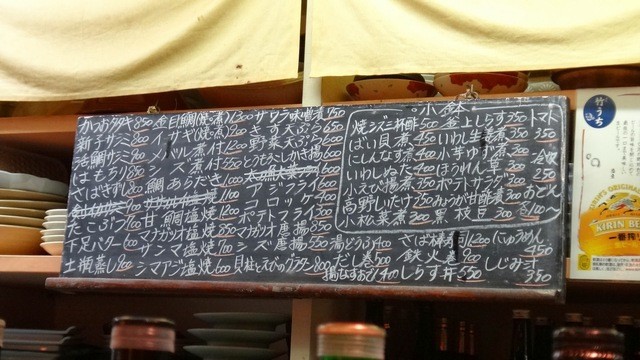 かつおタタキ850
新子サシミ900
活鯛サシミ900
はもちり850
しめさばきずし800
たこぶつ700
下足バター600
土瓶蒸し900
金目鯛(焼・煮)1300
イサギ(焼・煮)900
メバル煮付1200
シズ煮付550
鯛あらだき
甘鯛塩焼1200
マナガツオ塩焼850
サンマ塩焼700
シマアジ塩焼600
サワラ味噌煮750
きす天ぷら650
野菜天ぷら600
とうもろこしかき揚600
アジフライ600
コロッケ400
ポテトフライ300
マナガツオ唐揚850
シズ唐揚550
貝柱とえびのグラタン800
小鉢
焼シズ三杯酢500
ばい貝煮450
にしんなす煮400
いわしぬた400
小えび揚煮350
高野しいたけ350
小松菜煮300
釜上しらす350
いわし生姜煮350
小芋ゆず煮300
ほうれん草300
ポテトサラダ300
みょうが甘酢漬300
黒枝豆300
トマト350
冷奴250
おでん
各100
湯どうふ400
だし巻500
揚なすおひたし400
さば棒寿司1200
鉄火巻900
しらす丼650
にゅうめん450
しじみ汁350
竹うち
KIRIN BEER
一番搾り